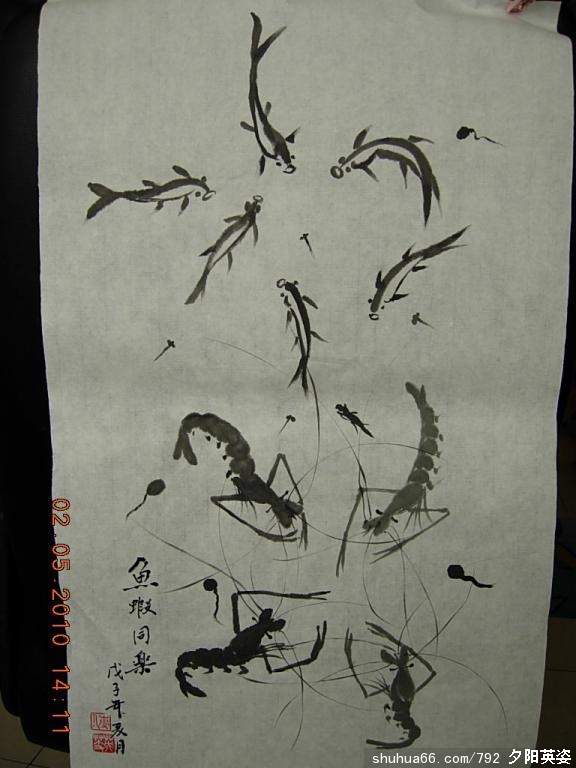 魚蝦同樂
戊子年夏月
02.05.2010 14:11
shuhua66.com/792 夕阳英姿